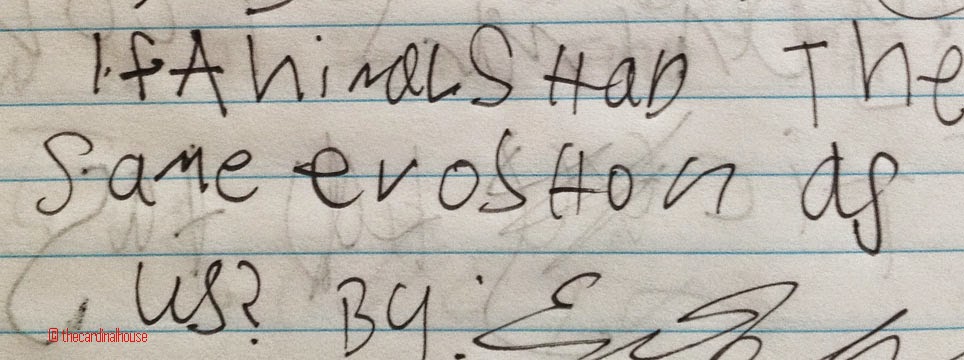 If Animals Had The
Same evoshon as
us? By:
@thecardinalhouse